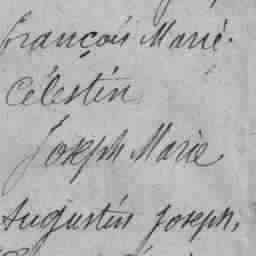 françois Marie.
Célestin
Joseph Marie
Augustin Joseph,